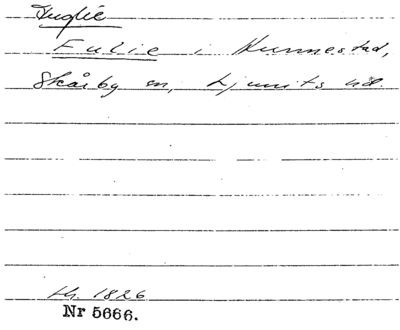 Fuglie
Fulie i Hunnestad,
Skårby sn, Ljunits hd.
Lh. 1826
Nr 5666.